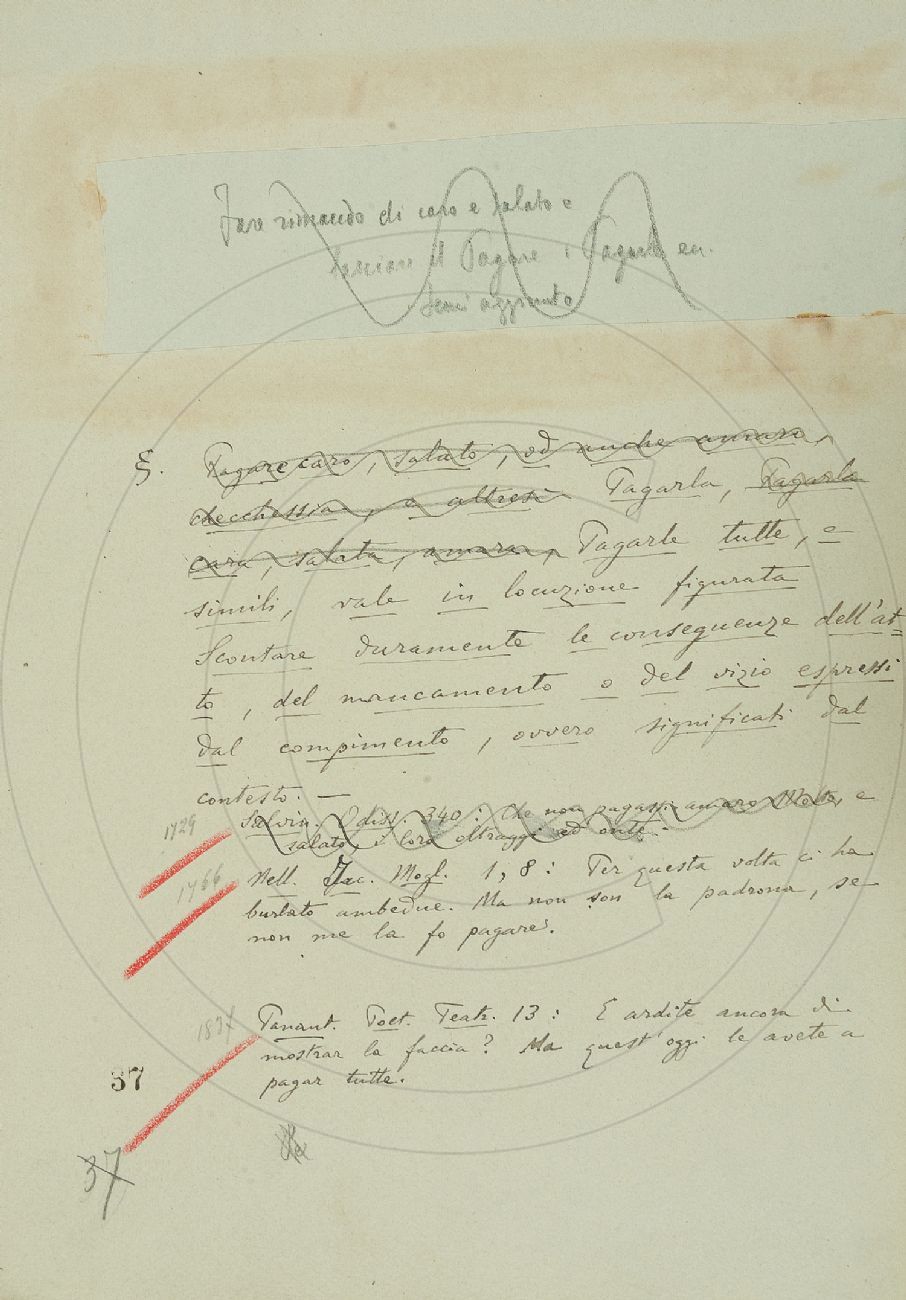 Fare rimando di caro e salato e
lasciare il Pagare i Pagarla
aggiunto
§. Pagare caro, salato, ed anche amaro,
checchessia, e altresì Pagarla, Pagarla
cara, salata, amara, Pagarle tutte, e
simili, vale in locuzione figurata
Scontare duramente le conseguenze dell'at=
to, del mancamento o del vizio espressi
dal compimento, ovvero significati dal
contesto. —
1729
Salvin. Odiss. 340: Che non pagassi amaro e
salato, i loro oltraggi ed onte. -
1766
Nell. Jac. Mogl. 1, 8: Per questa volta ci ha
burlato ambedue. Ma non son la padrona, se
non me la fo pagare.
Panant. Poet. Teatr. 13: E ardite ancora di
mostrar la faccia? Ma quest'oggi le avete a
pagar tutte.
37
37